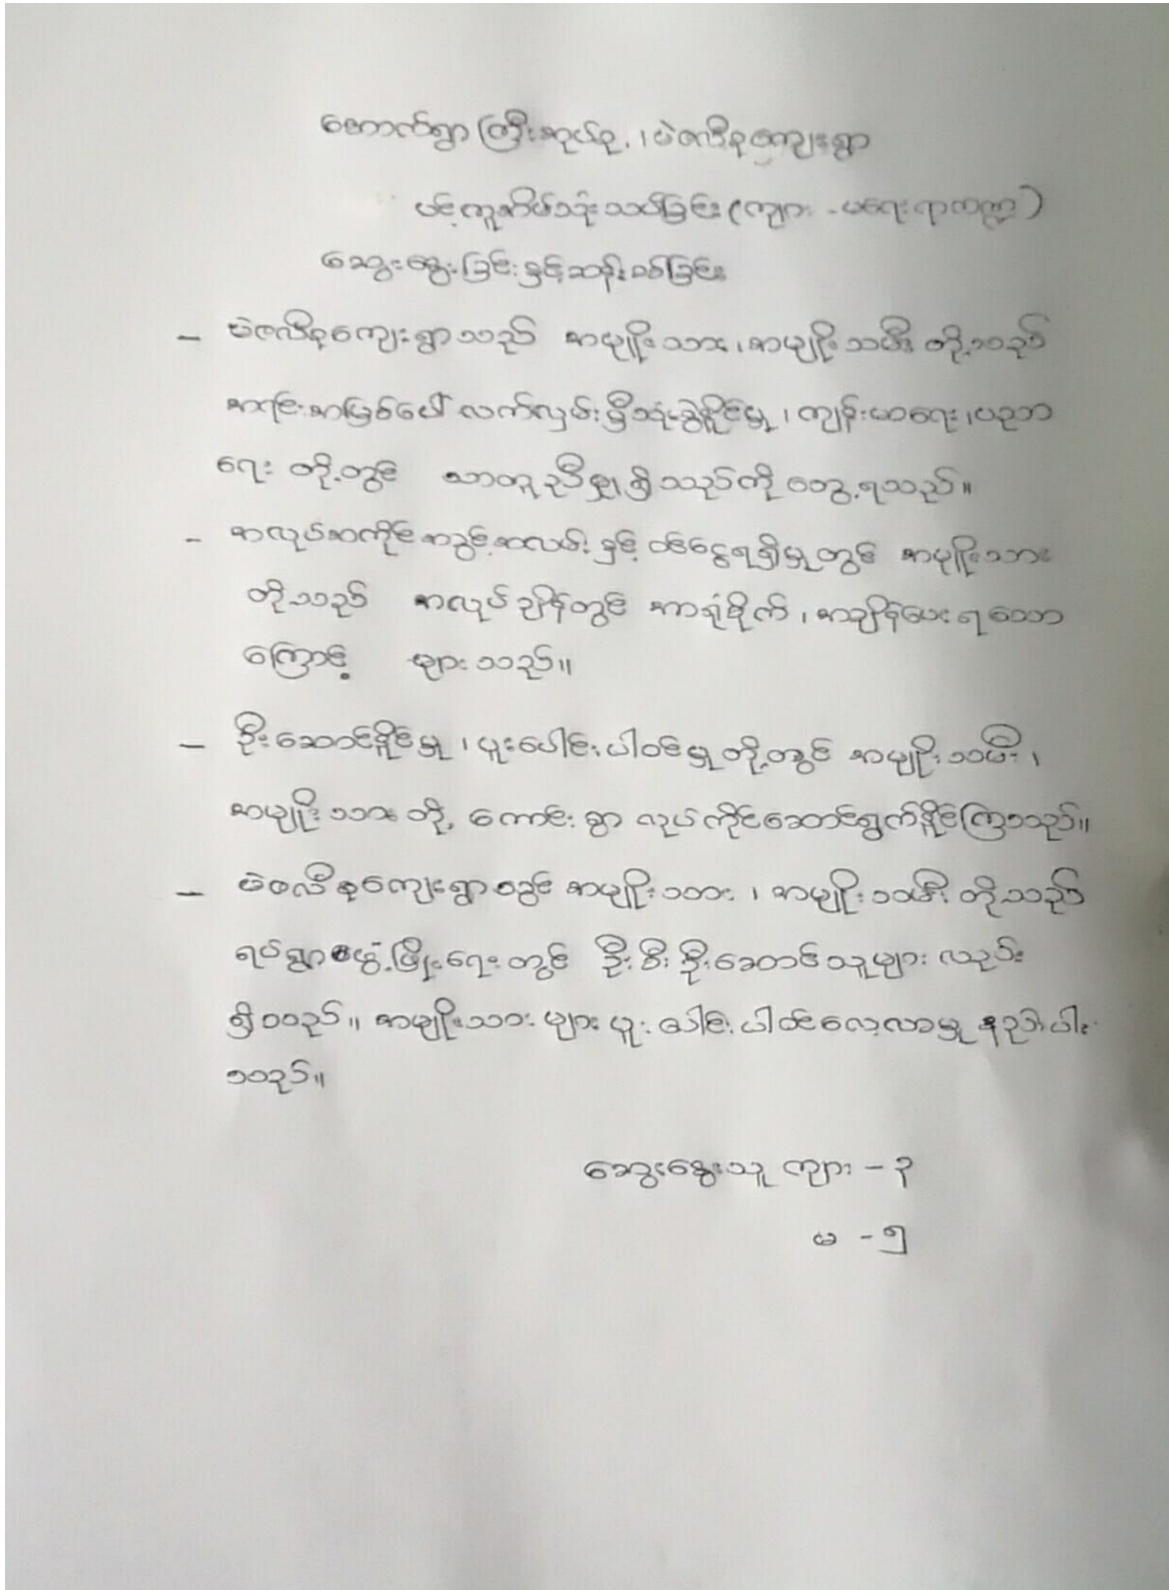 ကောက်ရွာကြီးအုပ်စု၊ မဲဇလီစုကျေးရွာ
ပင့်ကူအိမ်သုံးသပ်ခြင်း (ကျား - မရေးရာကဏ္ဍ)
ဆွေးနွေးခြင်းနှင့်ဆန်းစစ်ခြင်း
- မဲဇလီစုကျေးရွာသည် အမျိုးသား၊ အမျိုးသမီး တို့သည်
အရင်းအမြစ်ပေါ် လက်လှမ်းမှီသုံးစွဲနိုင်မှု၊ ကျန်းမာရေး၊ ပညာ
ရေး တို့တွင် သာတူညီမျှ ရှိသည်ကို တွေ့ရသည်။
- အလုပ်အကိုင်အခွင့်အလမ်း နှင့် ဝင်ငွေရရှိမှုတွင် အမျိုးသား
တို့သည် အလုပ်ချိန်တွင် အာရုံစိုက်၊ အချိန်ပေးရသော
ကြောင့် များသည်။
- ဦးဆောင်နိုင်မှု၊ ပူးပေါင်းပါဝင်မှုတို့တွင် အမျိုးသမီး၊
အမျိုးသားတို့ ကောင်းစွာ လုပ်ကိုင်ဆောင်ရွက်နိုင်ကြသည်။
- မဲဇလီစုကျေးရွာတွင် အမျိုးသား၊ အမျိုးသမီး တို့သည်
ရပ်ရွာဖွံ့ဖြိုးရေးတွင် ဦးစီးဦးဆောင်သူများ လည်း
ရှိသည်။ အမျိုးသားများ ပူးပေါင်းပါဝင်လေ့လာမှု နည်းပါး
သည်။
ဆွေးနွေးသူ ကျား - ၃
မ - ၅